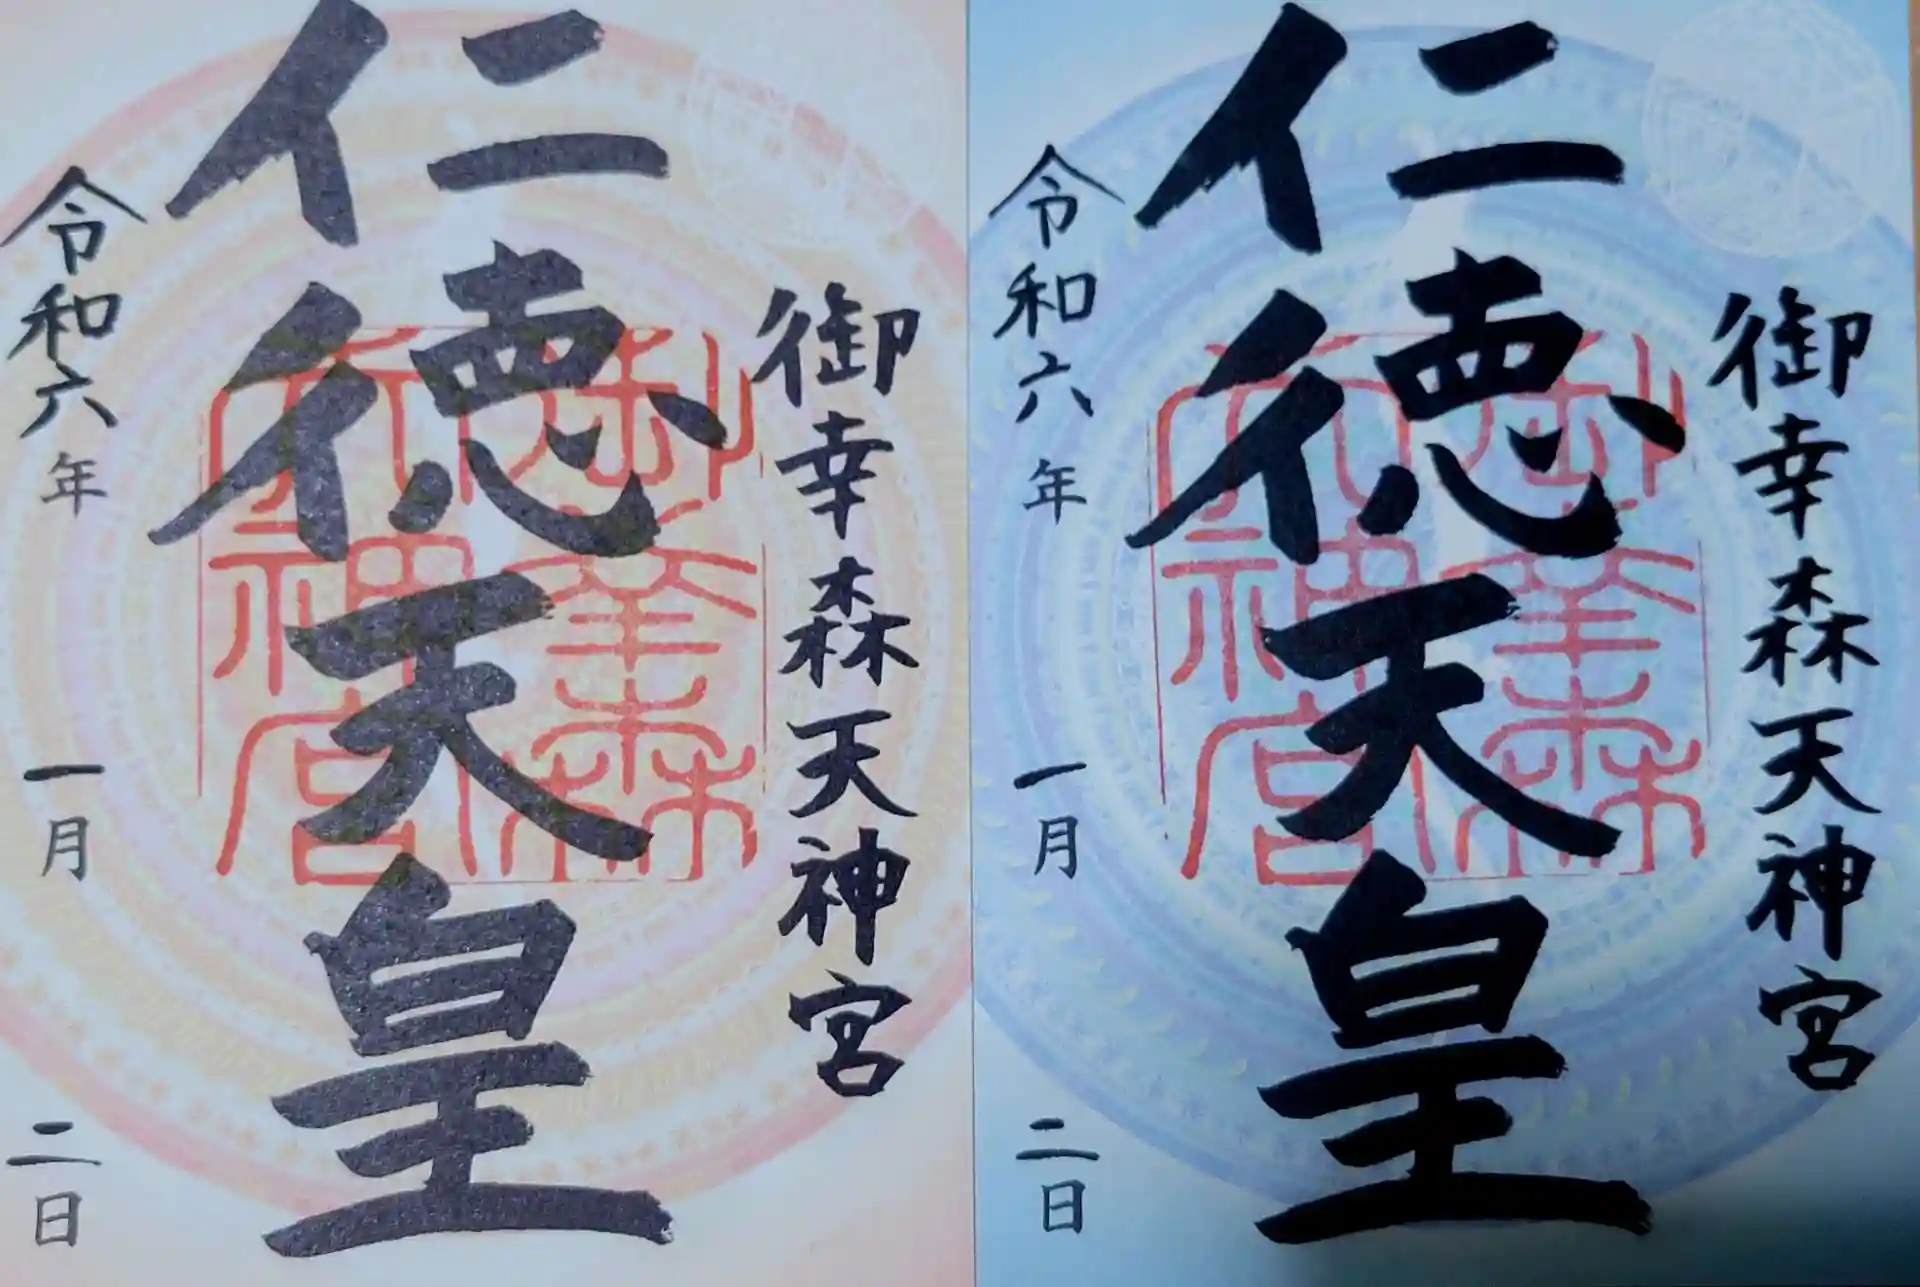 御幸森天神宮
仁徳天皇
令和六年 一月 二日
御幸森天神宮
御幸森天神宮
仁徳天皇
令和六年 一月 二日
御幸森天神宮